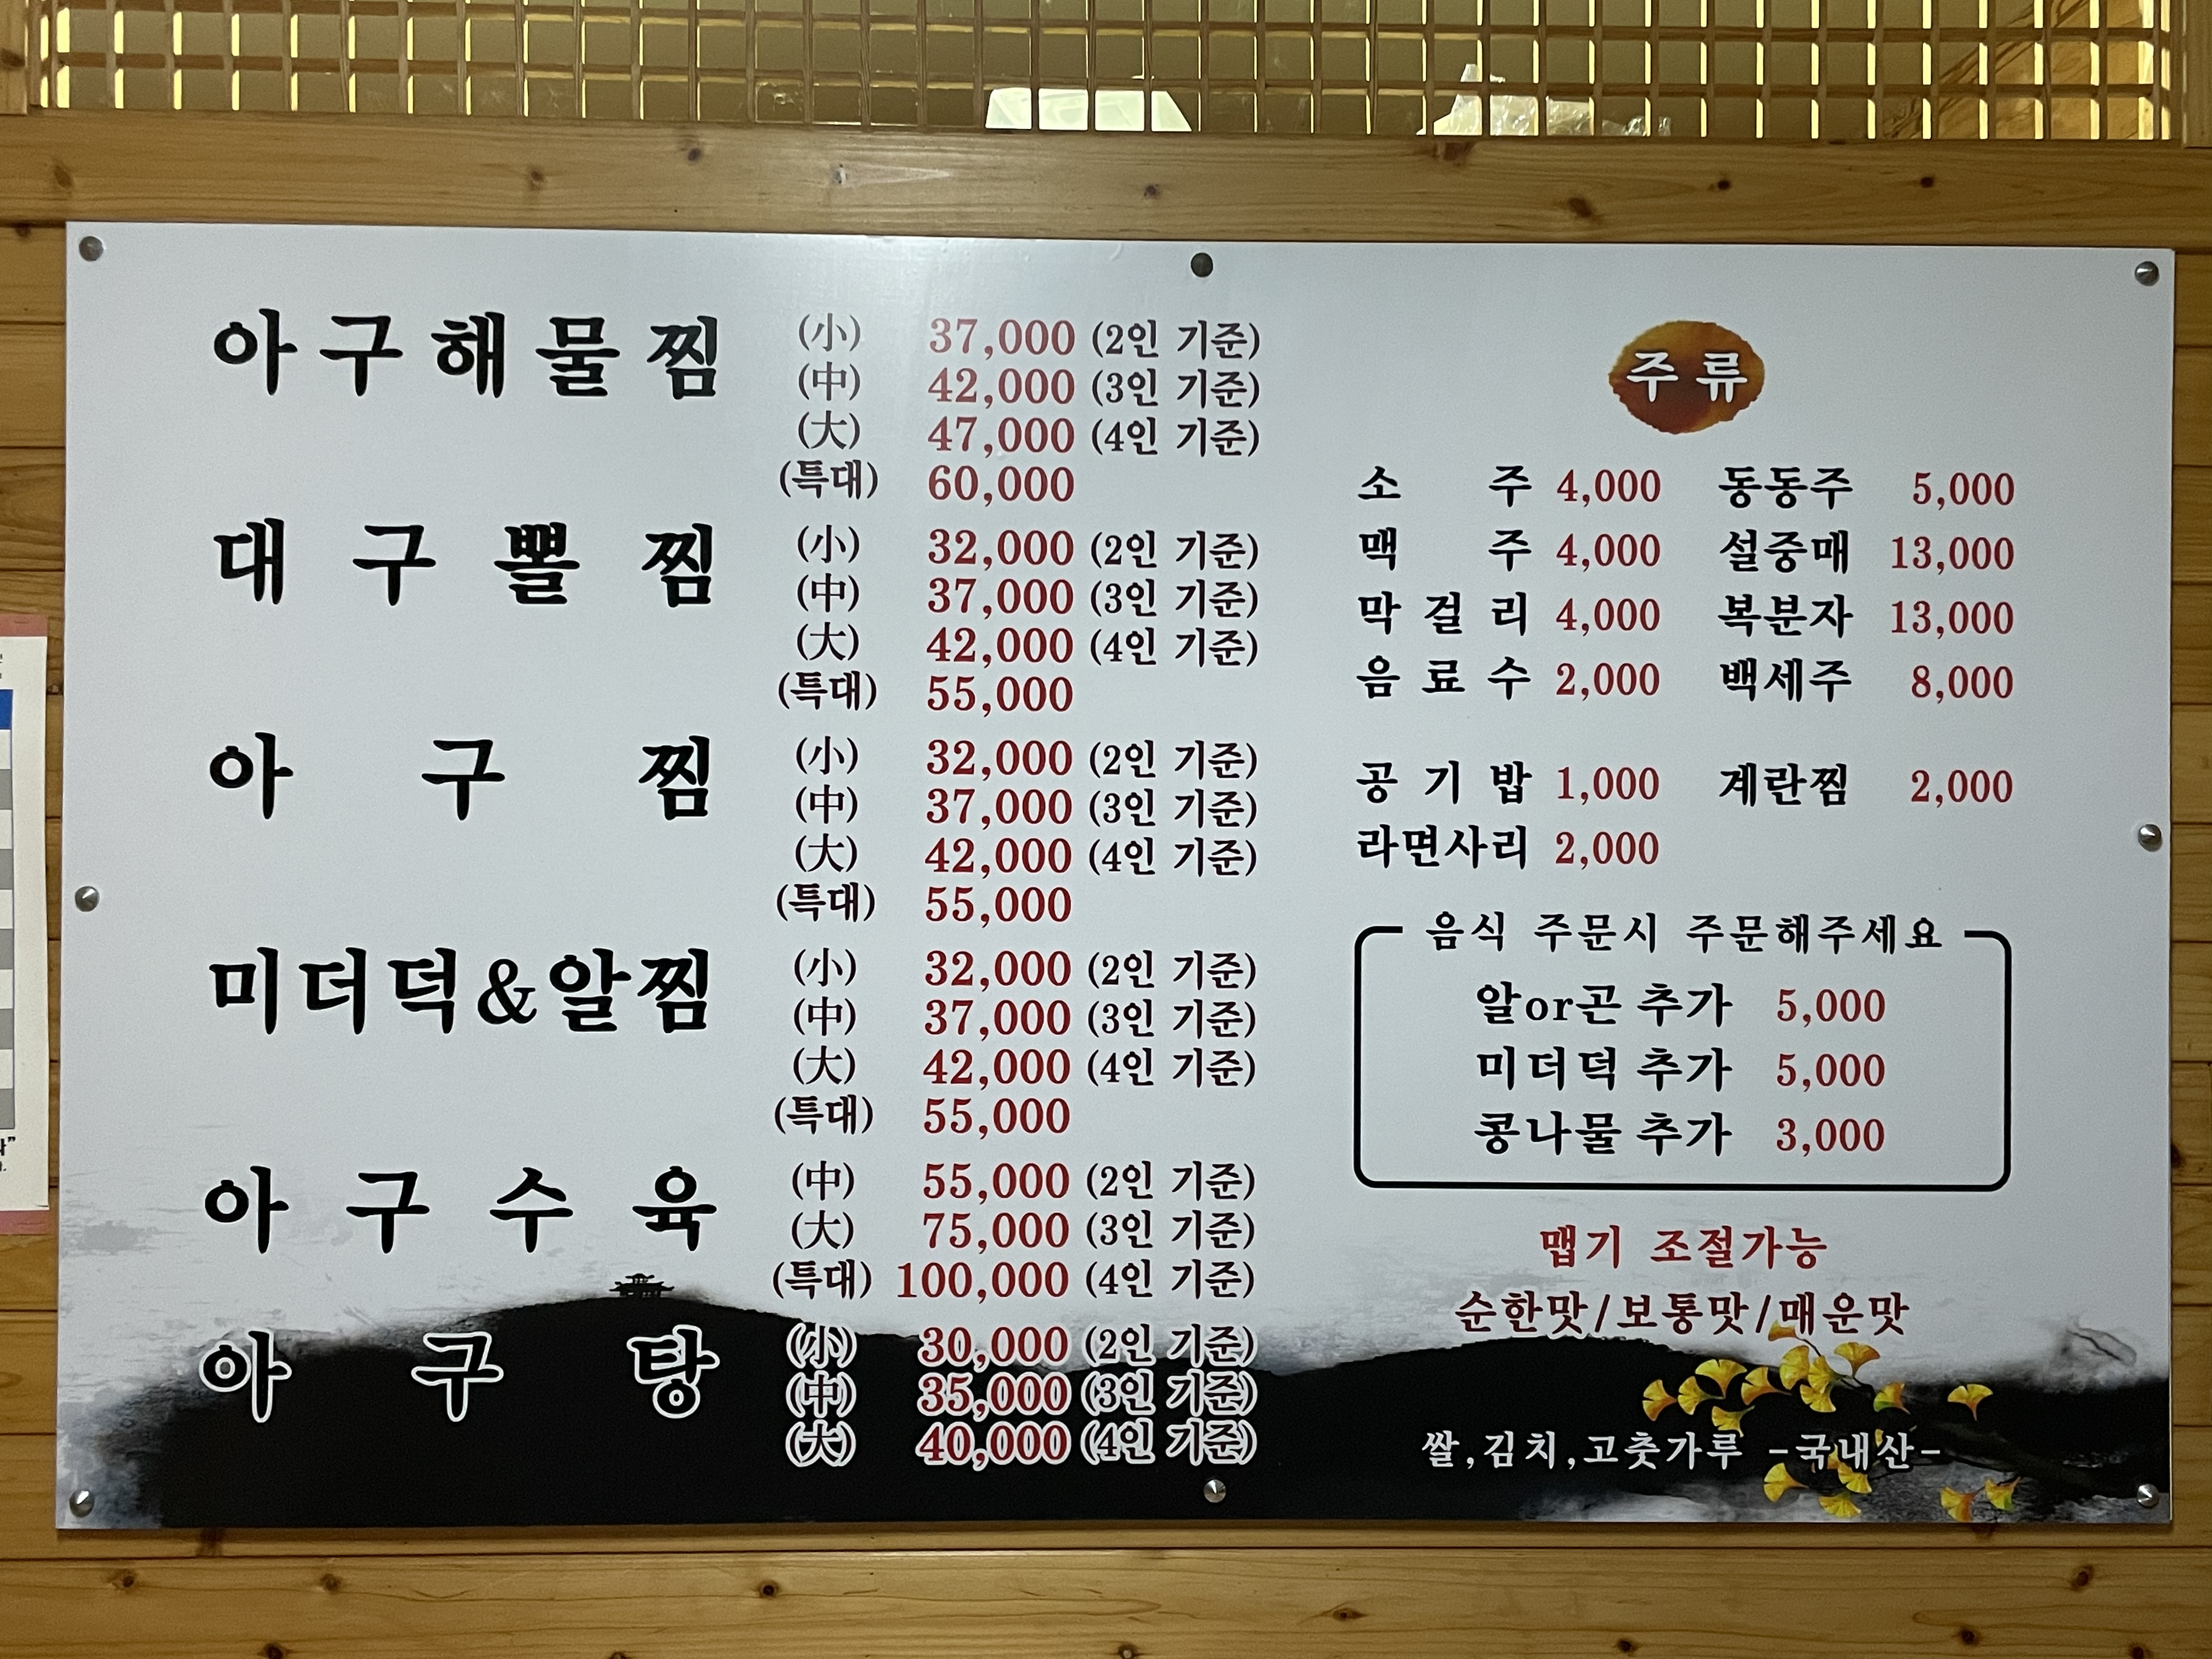 아구해물찜 (小) 37,000 (2인 기준)
(中) 42,000 (3인 기준)
(大) 47,000 (4인 기준)
(특대) 60,000
대구뽈찜 (小) 32,000 (2인 기준)
(中) 37,000 (3인 기준)
(大) 42,000 (4인 기준)
(특대) 55,000
아구찜 (小) 32,000 (2인 기준)
(中) 37,000 (3인 기준)
(大) 42,000 (4인 기준)
(특대) 55,000
미더덕&알찜 (小) 32,000 (2인 기준)
(中) 37,000 (3인 기준)
(大) 42,000 (4인 기준)
(특대) 55,000
아구수육 (中) 55,000 (2인 기준)
(大) 75,000 (3인 기준)
(특대) 100,000 (4인 기준)
아구탕 (小) 30,000 (2인 기준)
(中) 35,000 (3인 기준)
(大) 40,000 (4인 기준)
주류
소주 4,000 동동주 5,000
맥주 4,000 설중매 13,000
막걸리 4,000 복분자 13,000
음료수 2,000 백세주 8,000
공기밥 1,000 계란찜 2,000
라면사리 2,000
음식 주문시 주문해주세요
알or곤 추가 5,000
미더덕 추가 5,000
콩나물 추가 3,000
맵기 조절가능
순한맛/보통맛/매운맛
쌀,김치,고춧가루 -국내산-